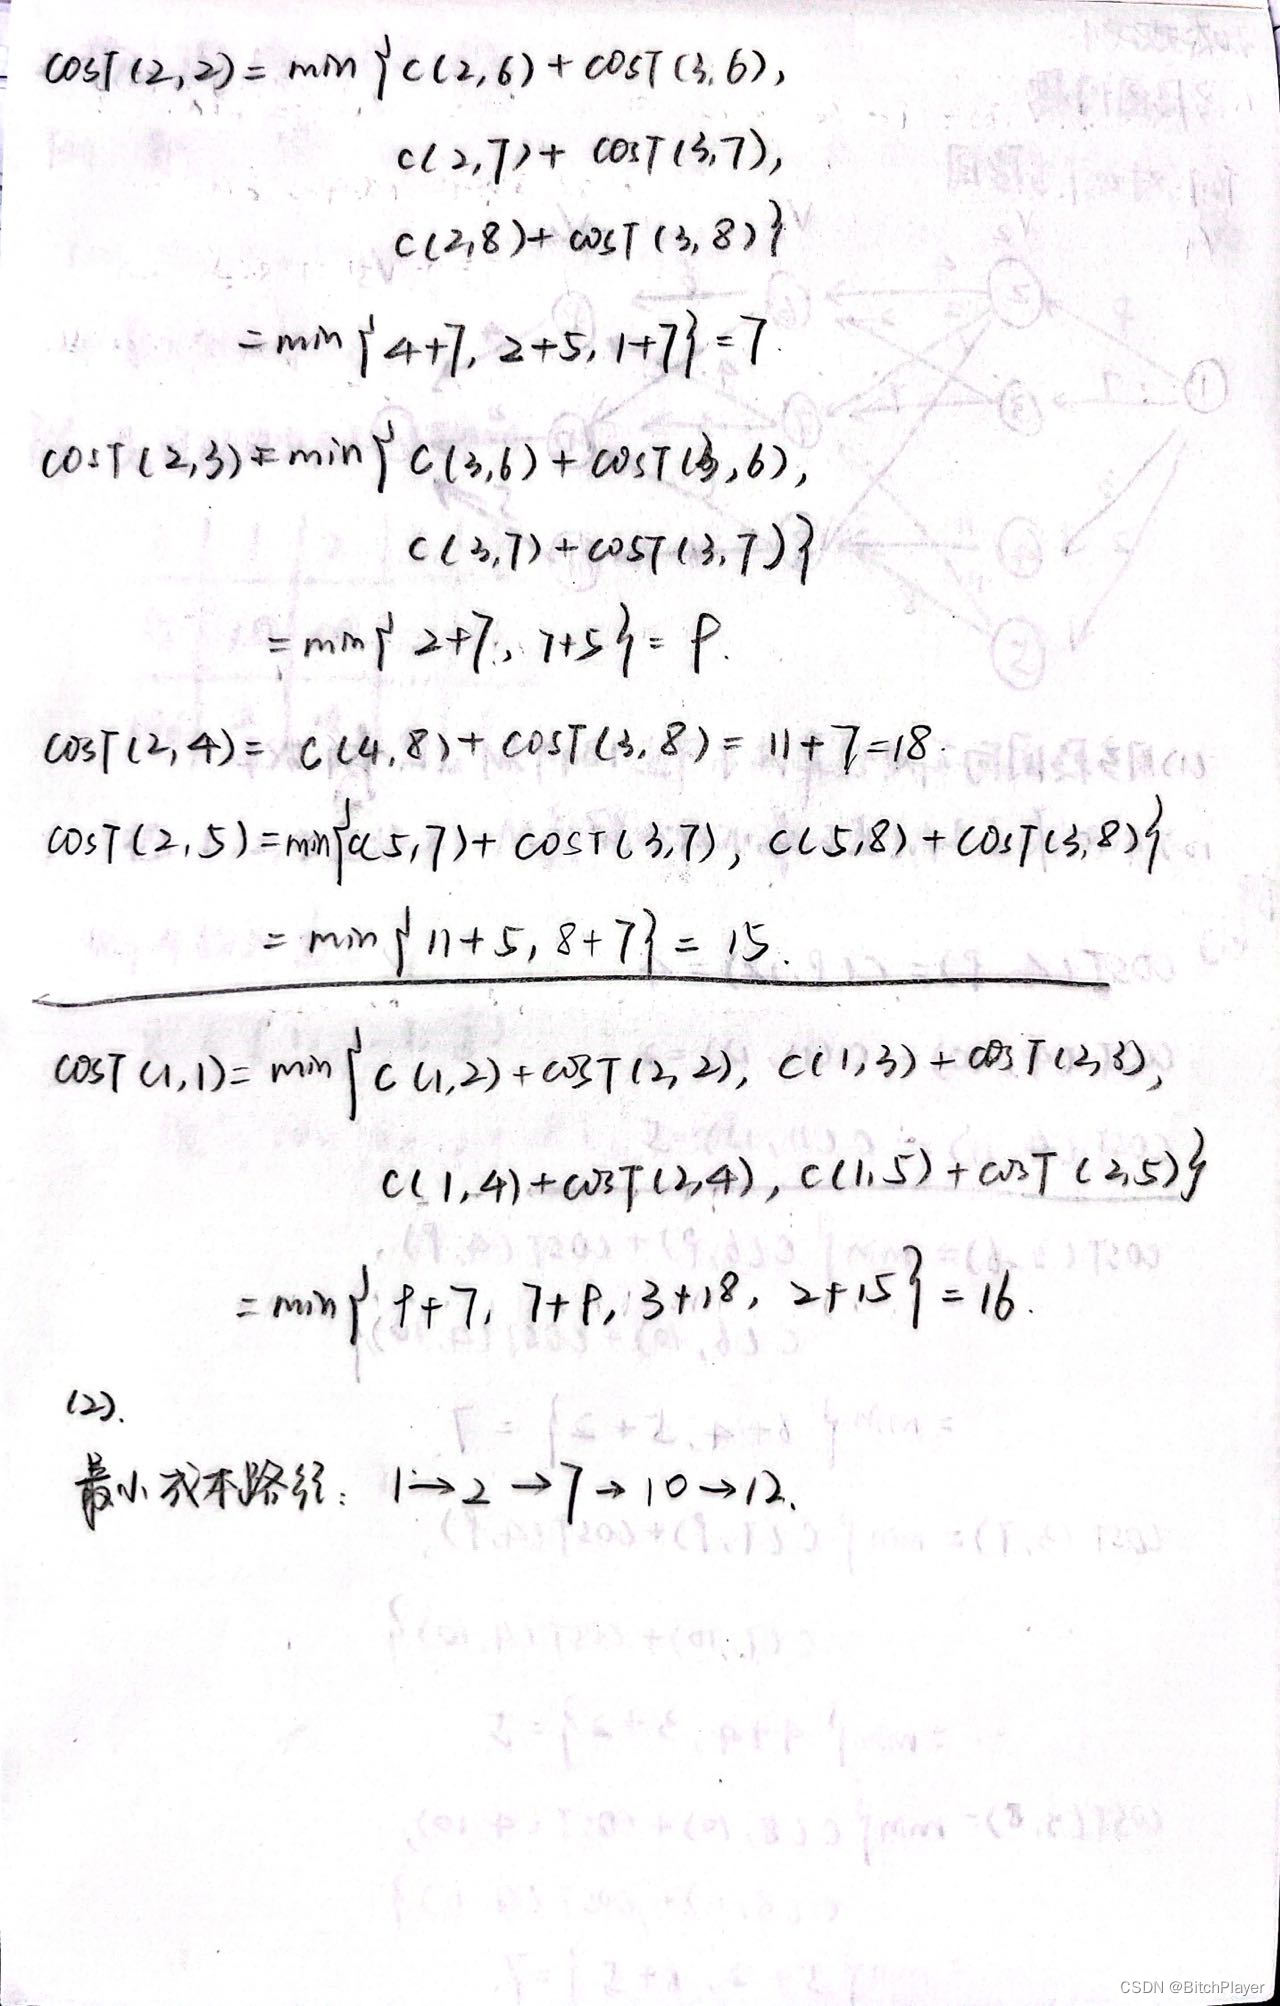 COST(2,2)= min{C(2,6)+COST(3,6),
C(2,7)+ COST(3,7),
C(2,8)+COST(3,8)}
=min{4+7, 2+5, 1+7}=7.
COST(2,3)=min{C(3,6)+COST(3,6),
C(3,7)+COST(3,7)}
=min{2+7, 7+5}=9.
COST(2,4)= C(4,8)+COST(3,8)= 11+7=18.
COST(2,5)=min{C(5,7)+COST(3,7), C(5,8)+COST(3,8)}
= min{11+5, 8+7}= 15.
COST(1,1)= min{C(1,2)+COST(2,2), C(1,3)+COST(2,3),
C(1,4)+COST(2,4), C(1,5)+COST(2,5)}
=min{9+7, 7+9, 3+18, 2+15}=16.
(2).
最小成本路径: 1→2→7→10→12.
CSDN @BitchPlayer